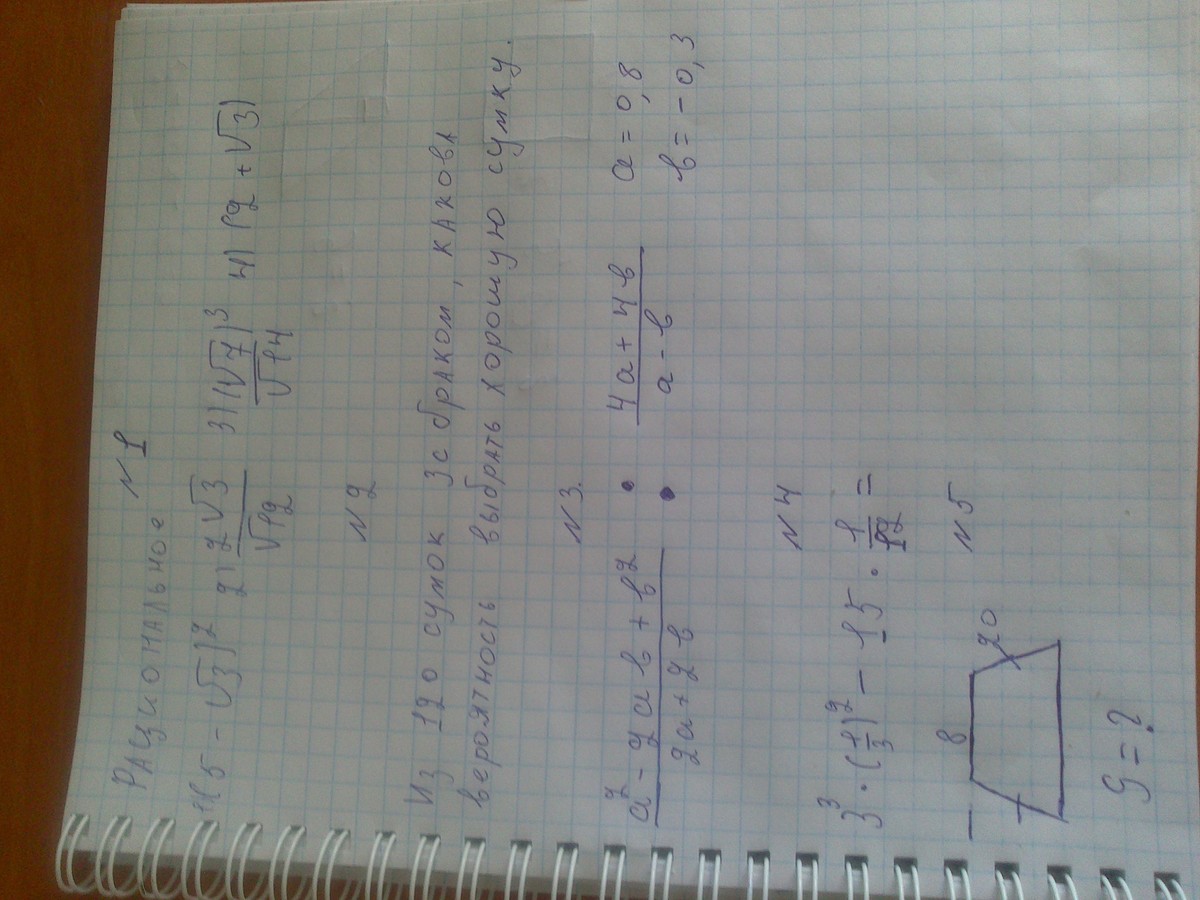 Рациональное №1
1) (5 - √3)² 2) 2√3/√12 3) (√7)³/√14 4) (2 + √3)
№2
Из 120 сумок 3 с браком, какова
вероятность выбрать хорошую сумку.
№3.
a² - 2ab + b²/2a + 2b : 4a + 4b/a - b a = 0,8
b = - 0,3
№4
3³ · (1/3)² - 15 · 1/12 =
№5
8
20
S = ?